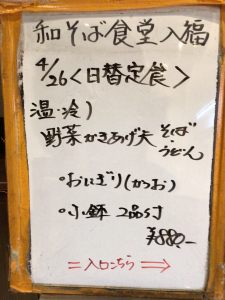 和そば食堂入福
4/26<日替定食>
温・冷)
野菜かきあげ天 そば・うどん
・おにぎり(かつお)
・小鉢 2品付
¥880-
=入口こちら⇒